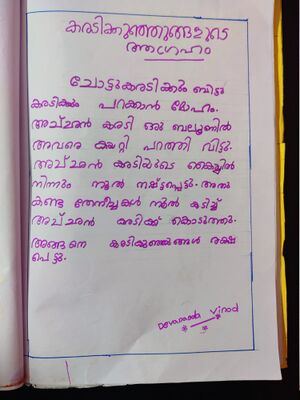 കരടിക്കുഞ്ഞുങ്ങളുടെ
ആഗ്രഹം
ചോട്ടുകരടിക്കും ബിട്ടു
കരടിക്കും പറക്കാൻ മോഹം.
അച്ഛൻ കരടി ഒരു ബലൂണിൽ
അവരെ കയറ്റി പറത്തി വിട്ടു.
അച്ഛൻ കരടിയുടെ കൈയ്യിൽ
നിന്നും നൂൽ നഷ്ട്ടപ്പെട്ടു. അതു
കണ്ട തേനീച്ചകൾ നൂൽ കടിച്ച്
അച്ഛൻ കരടിക്ക് കൊടുത്തു.
അങ്ങനെ കരടിക്കുഞ്ഞുങ്ങൾ രക്ഷ
പെട്ടു.
Devananda Vinod